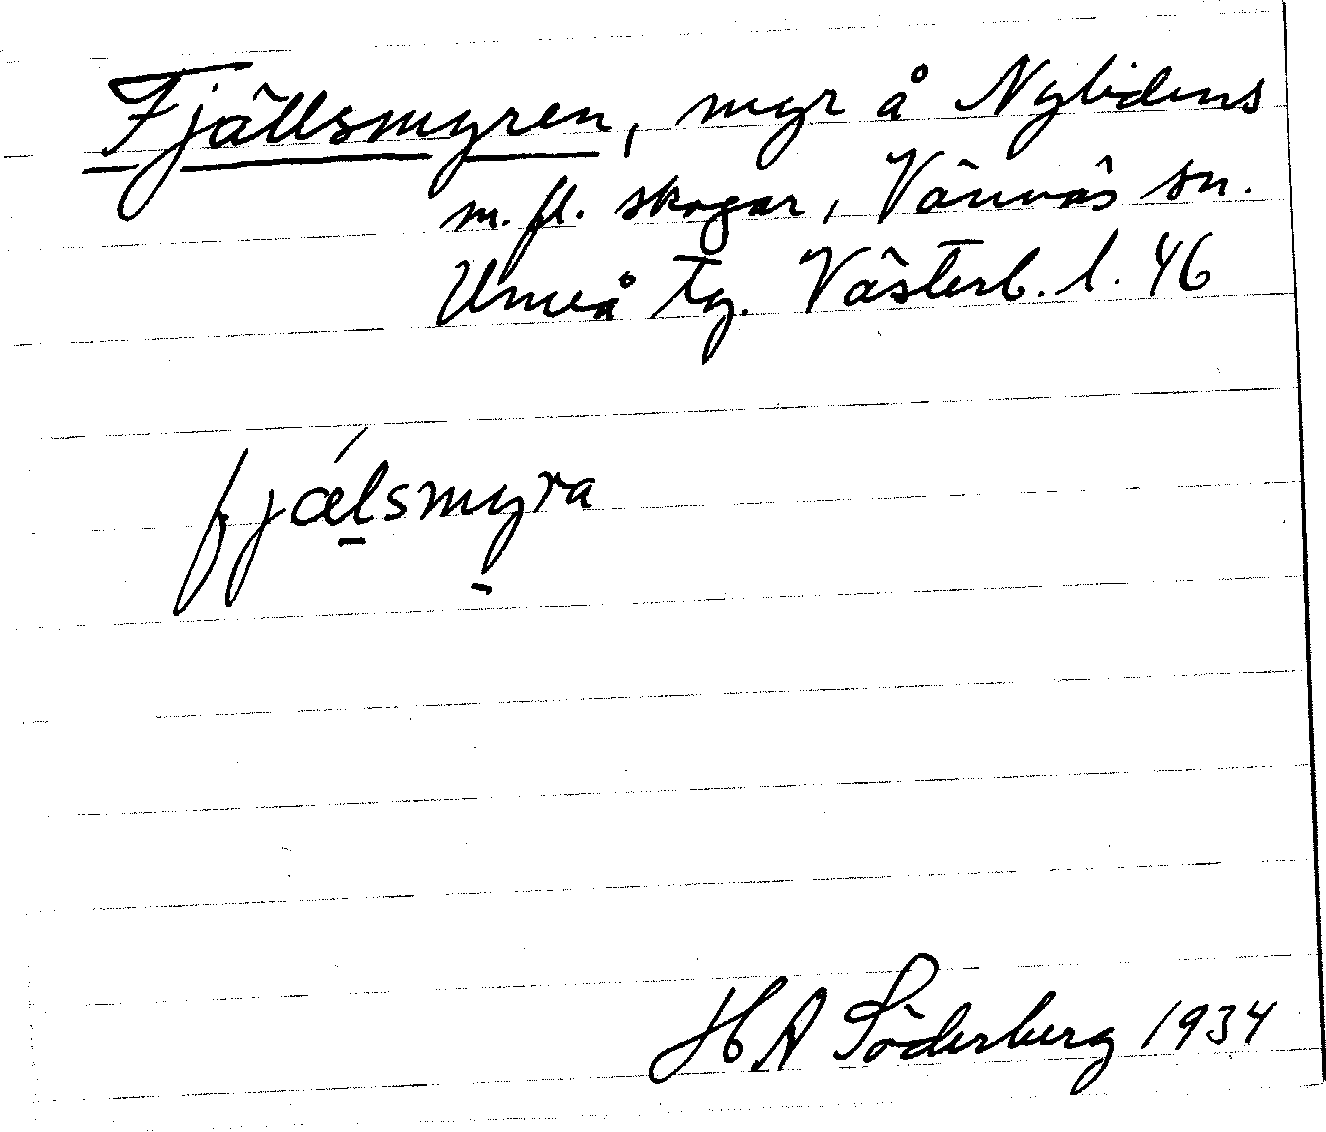 Fjällsmyren, myr å Nylidens
m. fl. skogar, Vännäs sn.
Umeå tg. Västerb. l. 46
fjǽl̠smy̠ra
H A Söderberg 1934